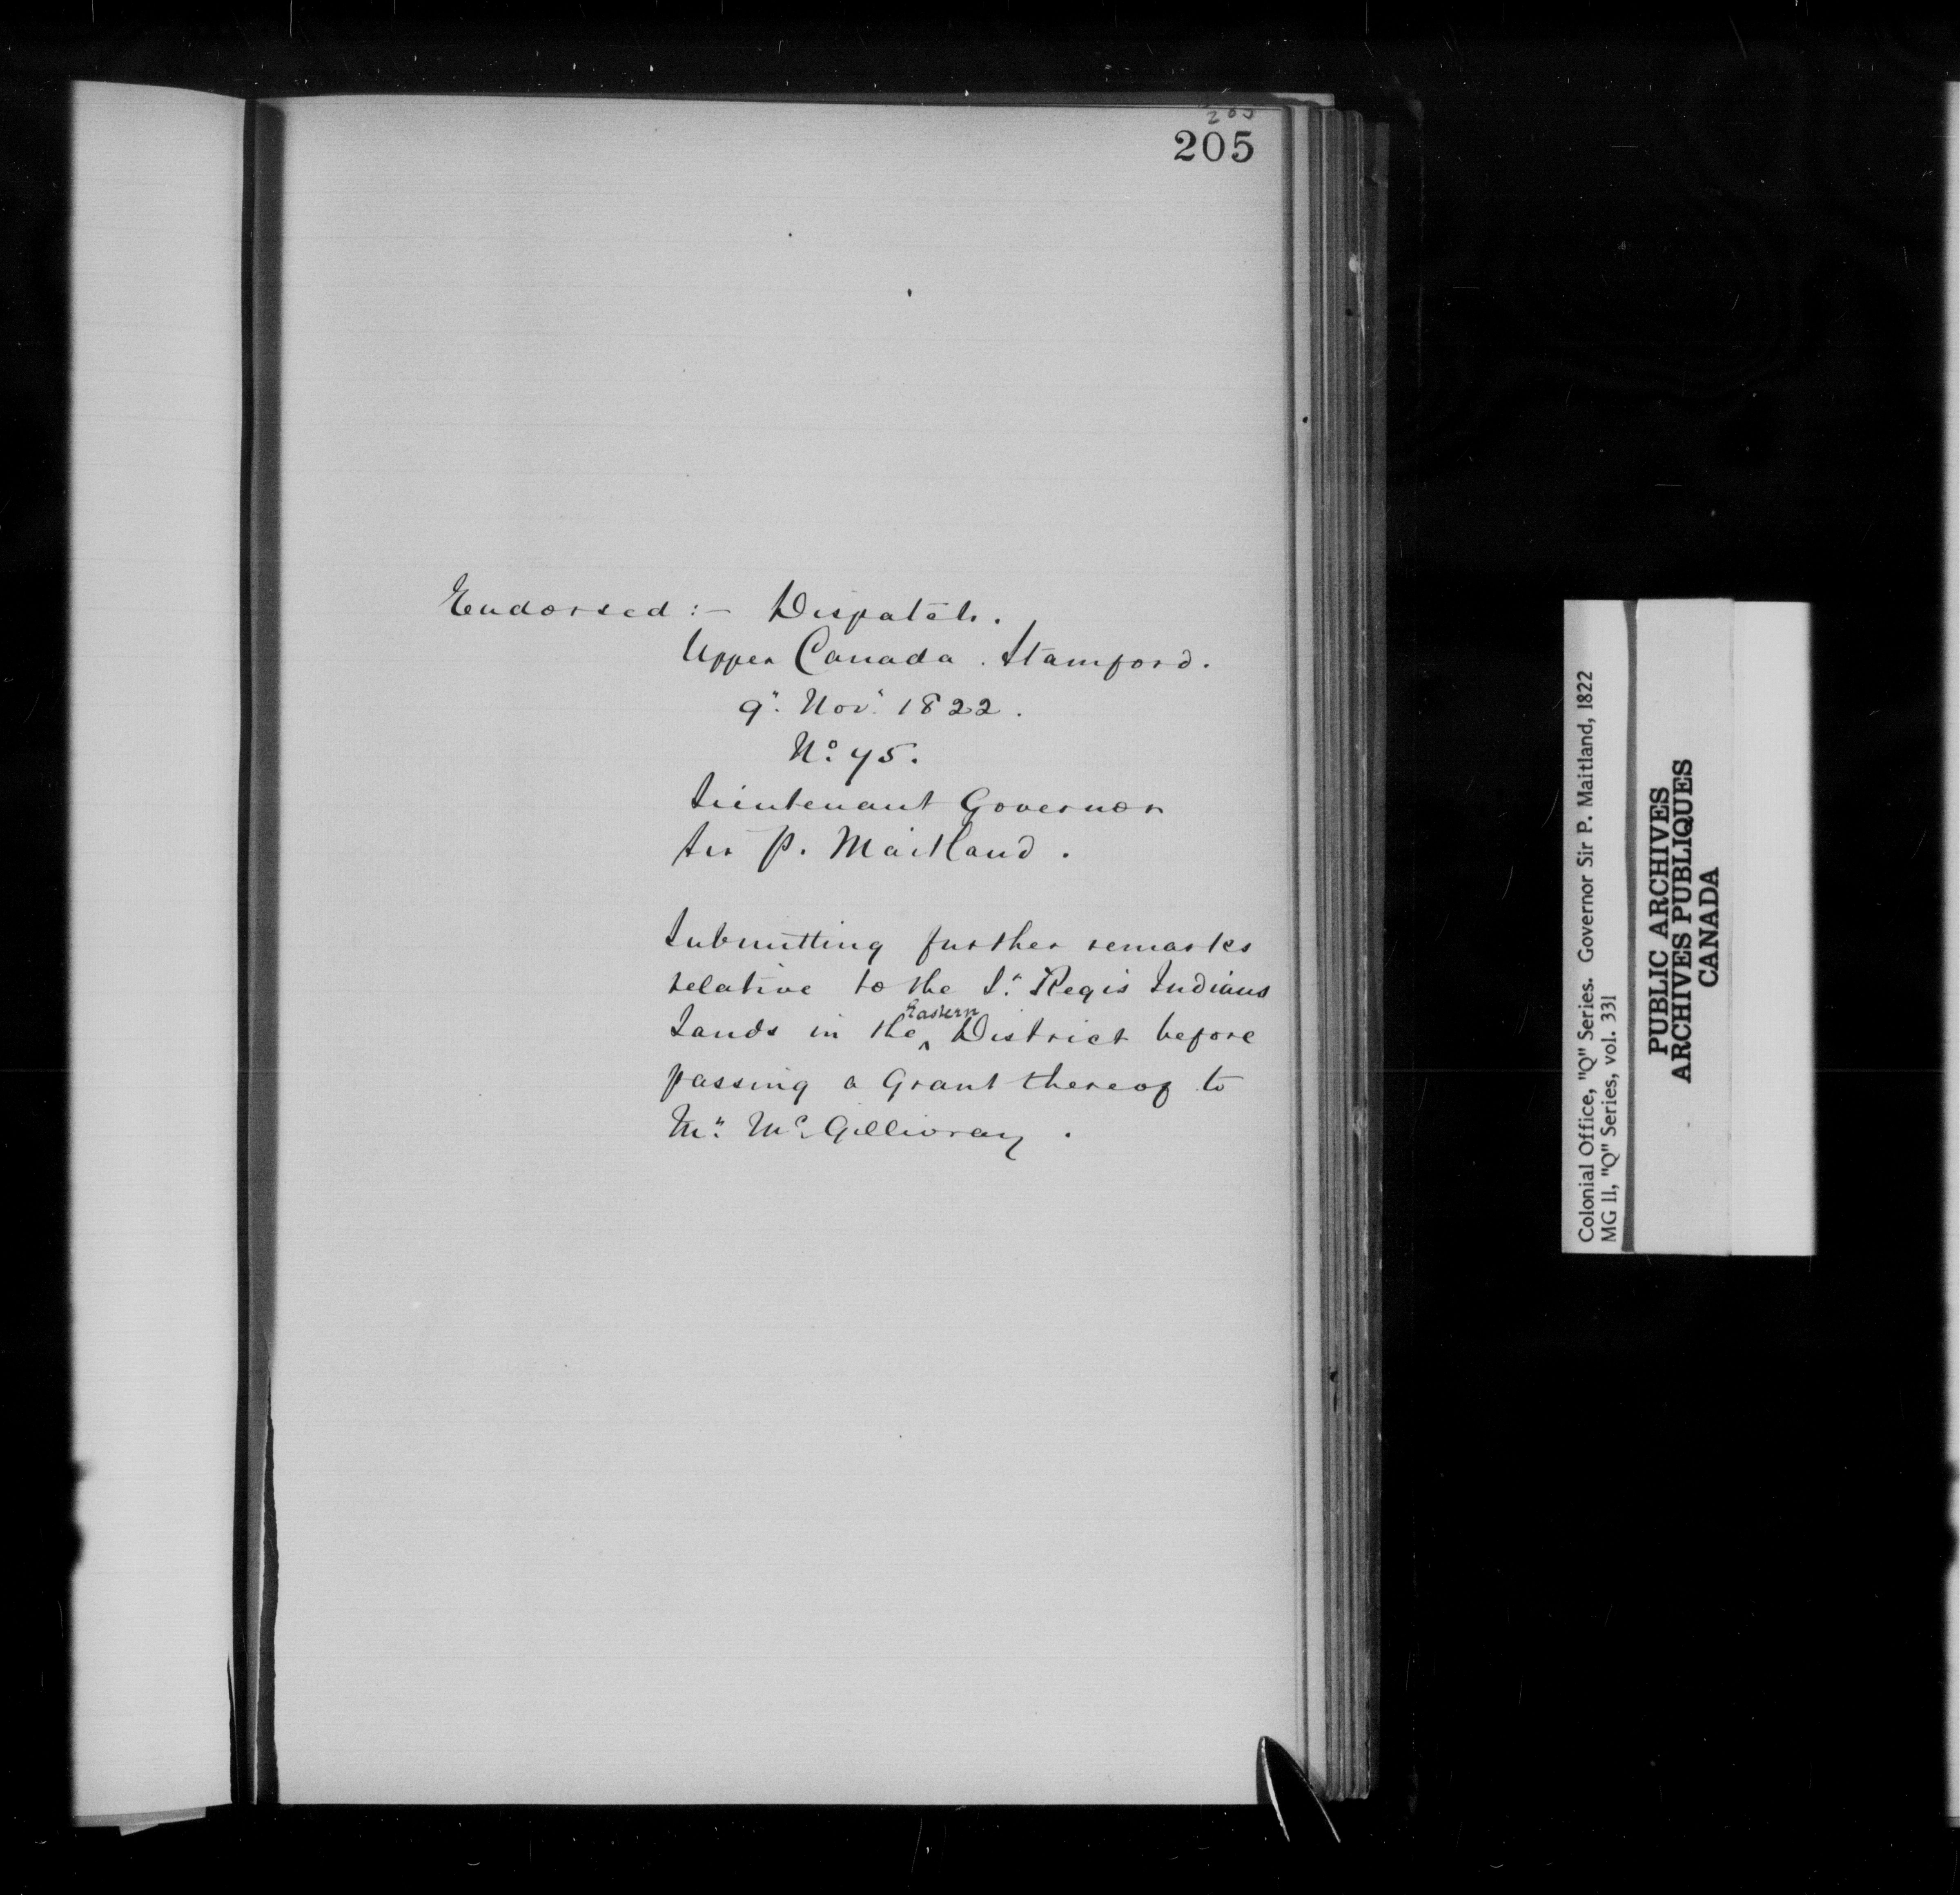 205
205
Endorsed:- Dispatch.
Upper Canada. Stamford.
9" Nov" 1822.
No. 75.
Lieutenant Governor
Sir P. Maitland.
Submitting further remarks
relative to the St Regis Indians
Lands in the Eastern District before
passing a Grant thereof to
Mr. McGillivray.
Colonial Office, "Q" Series. Governor Sir P. Maitland, 1822
MG 11, "Q" Series, vol. 331
PUBLIC ARCHIVES
ARCHIVES PUBLIQUES
CANADA